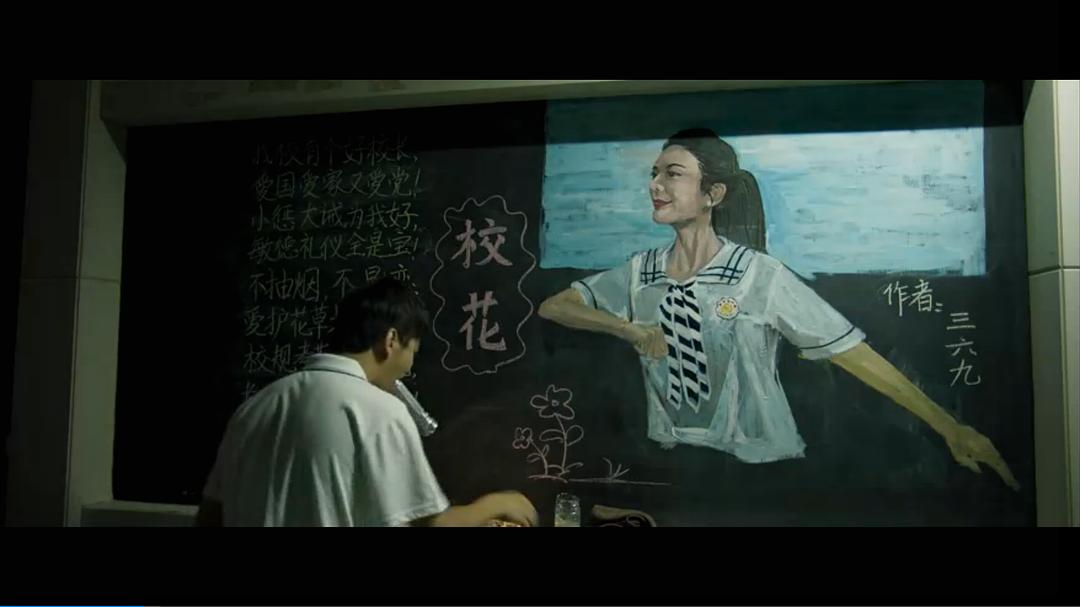 我校有个好校长,
爱国爱家又爱党!
小惩大诫为我好,
敏德礼仪全是宝!
不抽烟,不
爱护花草!
校规
校
花
作者:
三
六
九